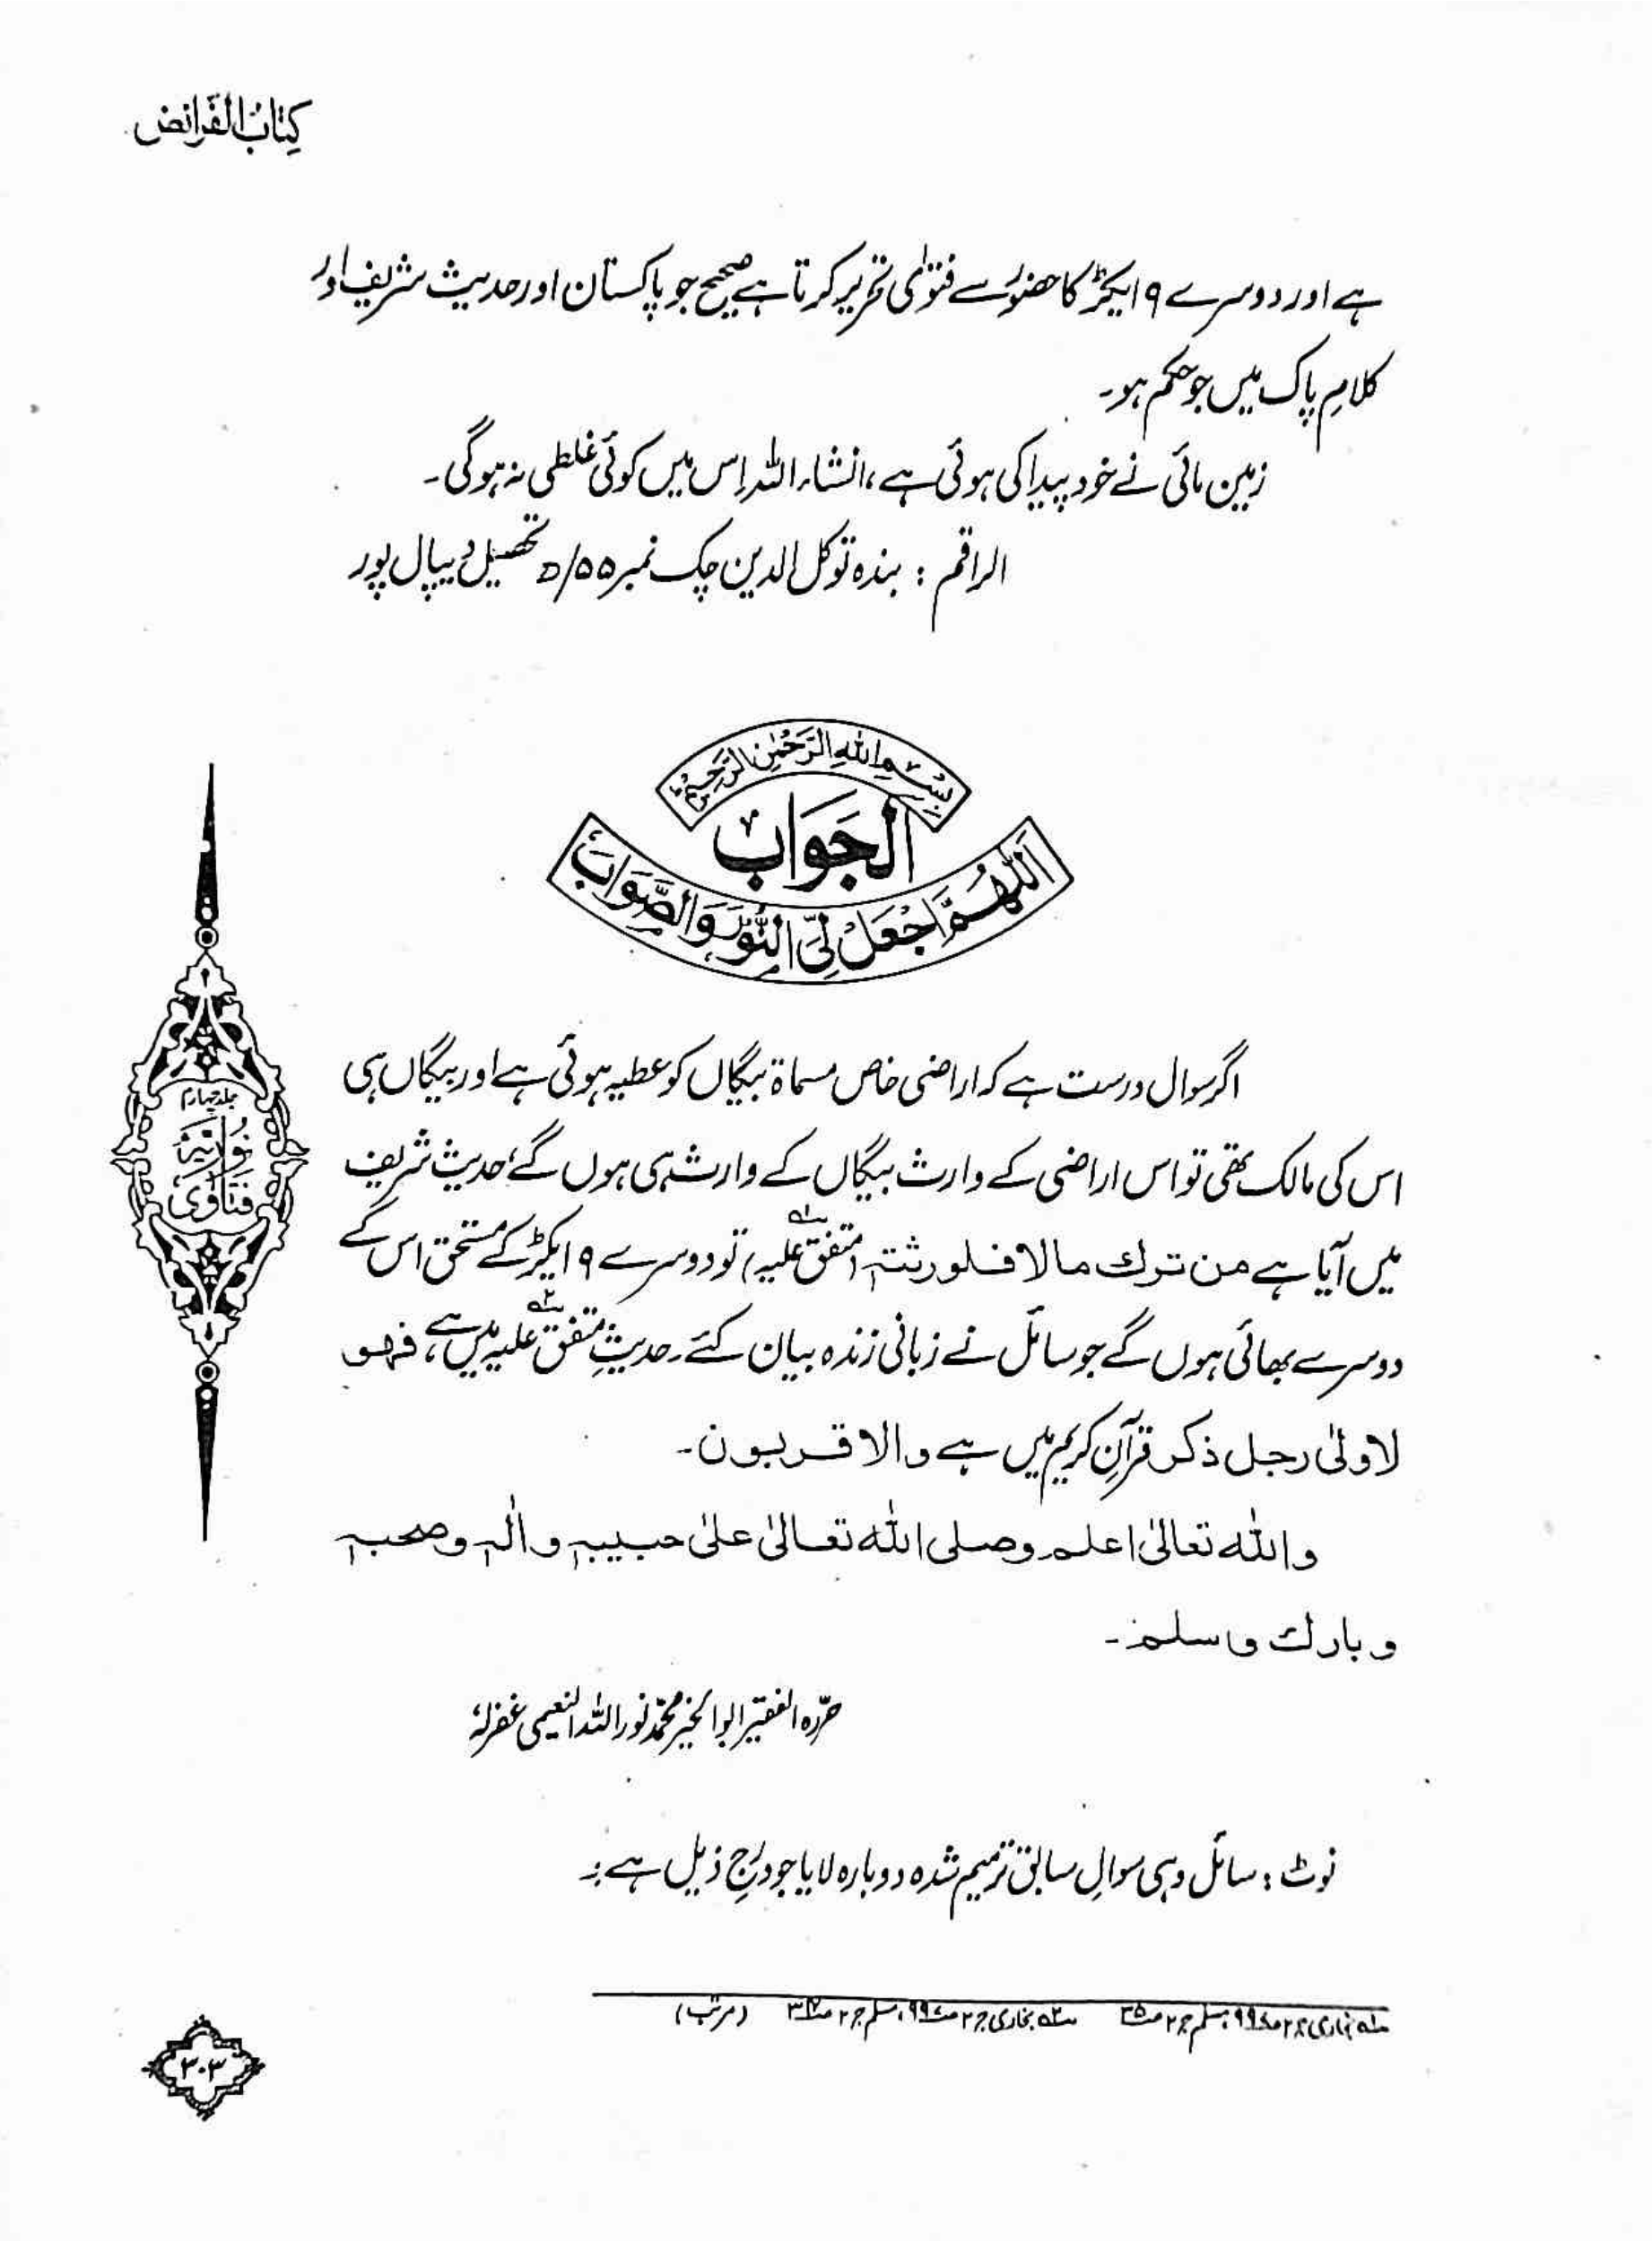 کِتَابُ الفَرائض
ہے اور دوسرے ۹ ایکڑ کا حضور سے فتوٰی تحریر کرتا ہے صحیح جو پاکستان اور حدیث شریف اور
کلامِ پاک میں جو حکم ہو۔
زمین مائی نے خود پیدا کی ہوئی ہے، انشاء اللہ اِس میں کوئی غلطی نہ ہوگی۔
الراقم : بندہ توکل الدین چک نمبر ۵۵/D تحصیل دیپال پور
بِسْمِ اللهِ الرَّحْمٰنِ الرَّحِيْمِ
اَلجَوَابُ
اَللّٰهُمَّ اجْعَلْ لِيَ النُّوْرَ وَالصَّوَابَ
اگر سوال درست ہے کہ اراضی خاص مسماۃ بیگاں کو عطیہ ہوئی ہے اور بیگاں ہی
اس کی مالک تھی تو اس اراضی کے وارث بیگاں کے وارث ہی ہوں گے، حدیث شریف
میں آیا ہے من ترك مالا فلورثتہ (متفق علیہ)؂۱ تو دوسرے ۹ ایکڑ کے مستحق اس کے
دوسرے بھائی ہوں گے جو سائل نے زبانی زندہ بیان کئے۔ حدیثِ متفق علیہ؂۲ میں ہے، فهو
لاولىٰ رجل ذكر قرآنِ کریم میں ہے والاقربون۔
والله تعالىٰ اعلم وصلى الله تعالىٰ علىٰ حبيبہ واٰلہ وصحبہ
وبارك وسلم۔
حرّرہ الفقیر ابوالخیر محمّد نور اللہ النعیمی غفرلہٗ
نوٹ : سائل وہی سوالِ سابق ترمیم شدہ دوبارہ لایا جو درجِ ذیل ہے :۔
؂۱ بخاری ج ۲ ص ۹۹۷، مسلم ج ۲ ص ۳۵ ؂۲ بخاری ج ۲ ص ۹۹۷، مسلم ج ۲ ص ۳۴ (مرتب)
جلد چہارم
نُورِیَہ
فتَاوٰی
۳۰۳